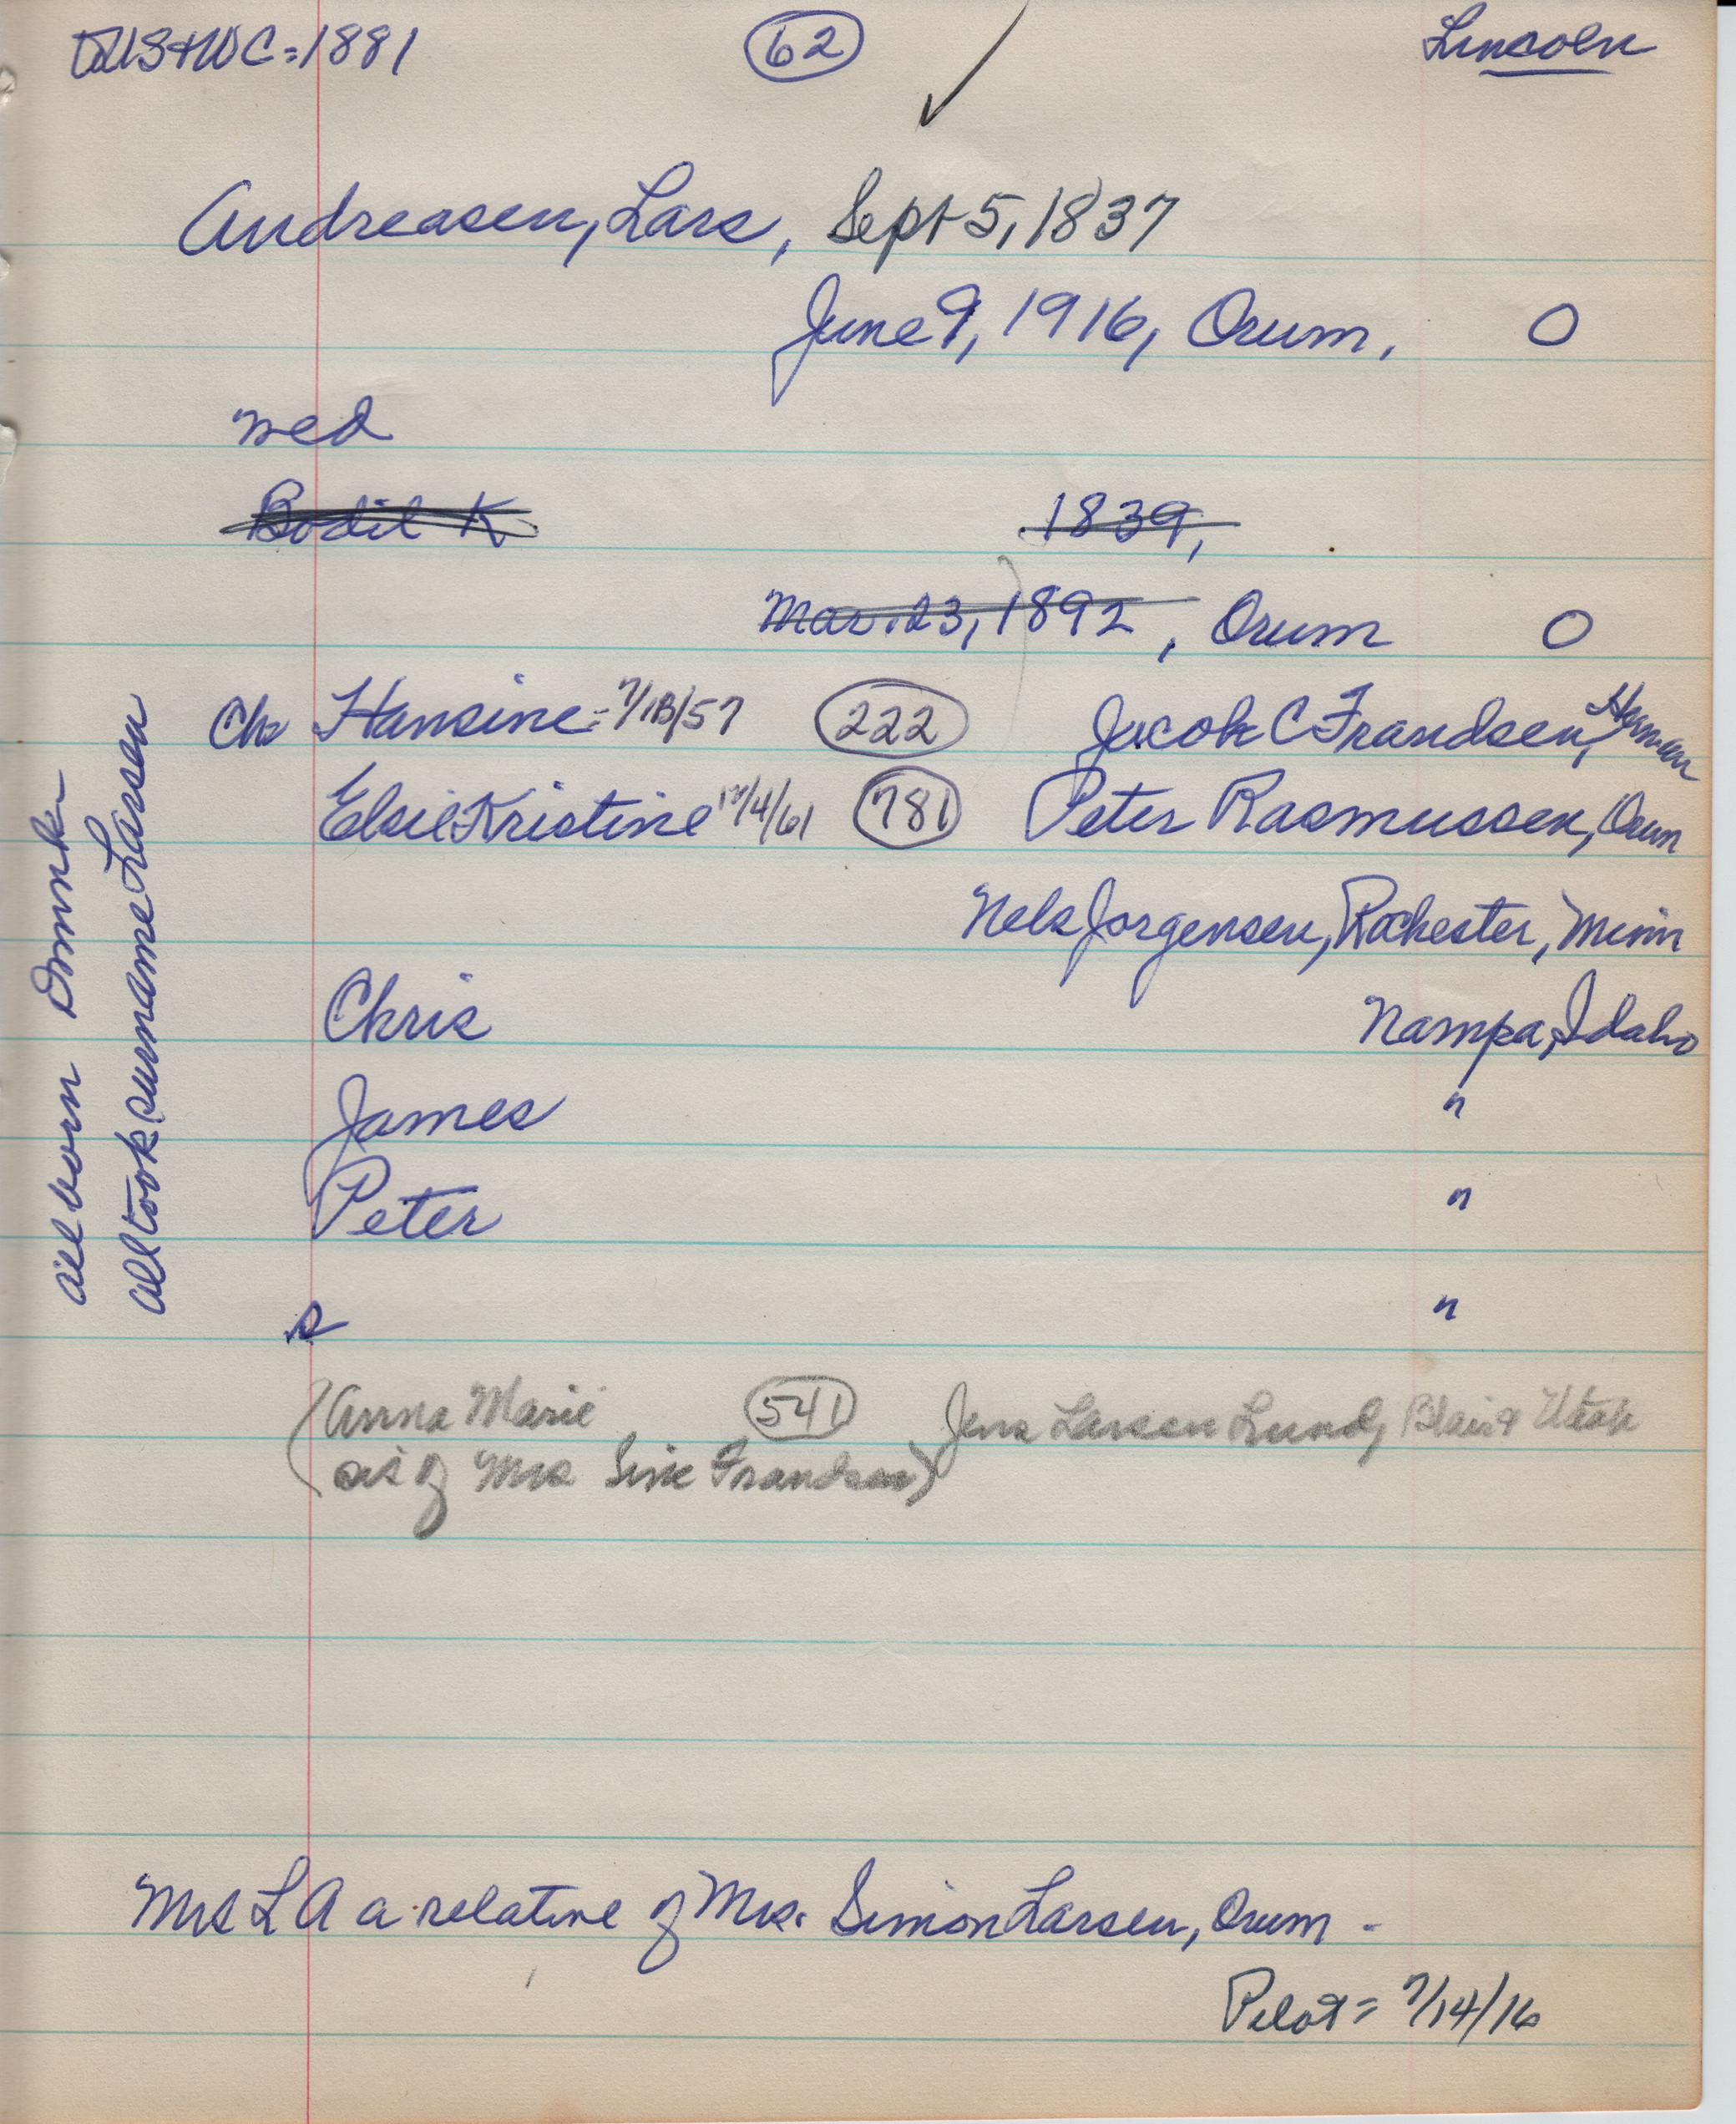 TUS+WC=1881
62
Lincoln
Andreasen, Lars, Sept 5, 1837
June 9, 1916, Orum, O
wed
Bodil K 1839,
Mar. 23, 1892, Orum O
Ch Hansine = 7/13/57 222 Jacob C Frandsen, Herman
Elsie Kristine 12/4/61 781 Peter Rasmussen, Orum
Nels Jorgensen, Rochester, Minn
Chris Nampa, Idaho
James "
Peter "
s "
(Anna Marie 541 Jens Larsen Lund, Blair & Utah
sis of Mrs Sine Frandsen)
all born Dmrk
all took surname Larsen
Mrs L A a relative of Mrs. Simon Larsen, Orum -
Pilot = 7/14/16